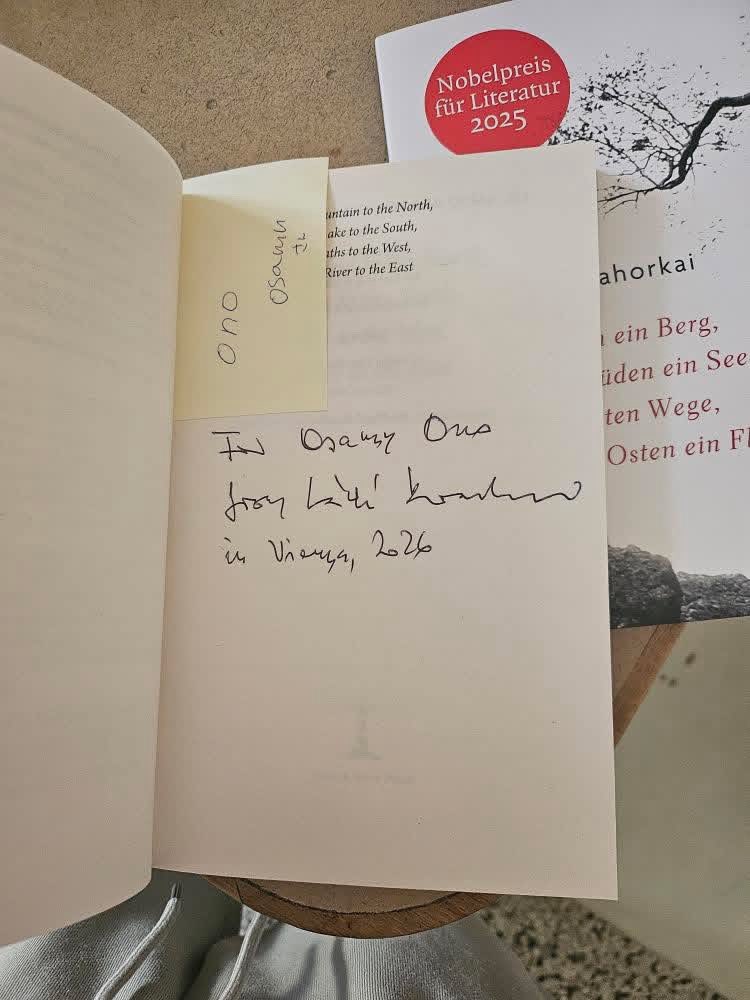 Nobelpreis
für Literatur
2025
untain to the North,
ake to the South,
aths to the West,
River to the East
Ono
Osamu
ahorkai
ein Berg,
üden ein See
ten Wege,
Osten ein Fl
Osamu Ono
from
in Vienna, 2026